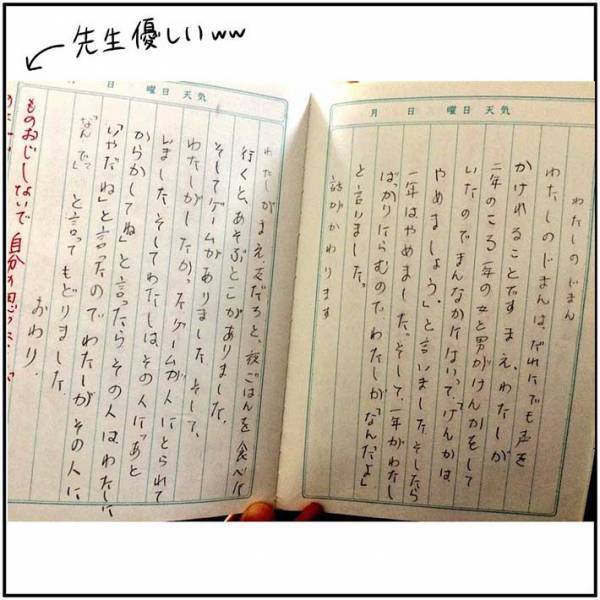 先生優しいww
月 日 曜日 天気
わたしのじまん
わたしのじまんは、だれにでも声を
かけれることですまえ、わたしが
二年のころ一年の女と男がけんかをして
いたのでまんなかにはいって、「けんかは、
やめましょう」と言いましたそしたら
一年はやめました。そして、一年がわたし
ばっかりにらむので、わたしが「なんだよ」
と言いました。
話がかわります
日 曜日 天気
わたしがまえ友だちと、夜ごはんを食べに
行くと、あそぶとこがありました。
そしてゲームがありましたそして、
わたしがしたかったゲームが人にとられて
しましたそしてわたしは、その人に「あと
からかしてね」と言ったらその人は、わたしに
「いやだね」と言ったのでわたしがその人に
「なんでっ」と言ってもどりました。
おわり。
ものおじしないで自分の思った